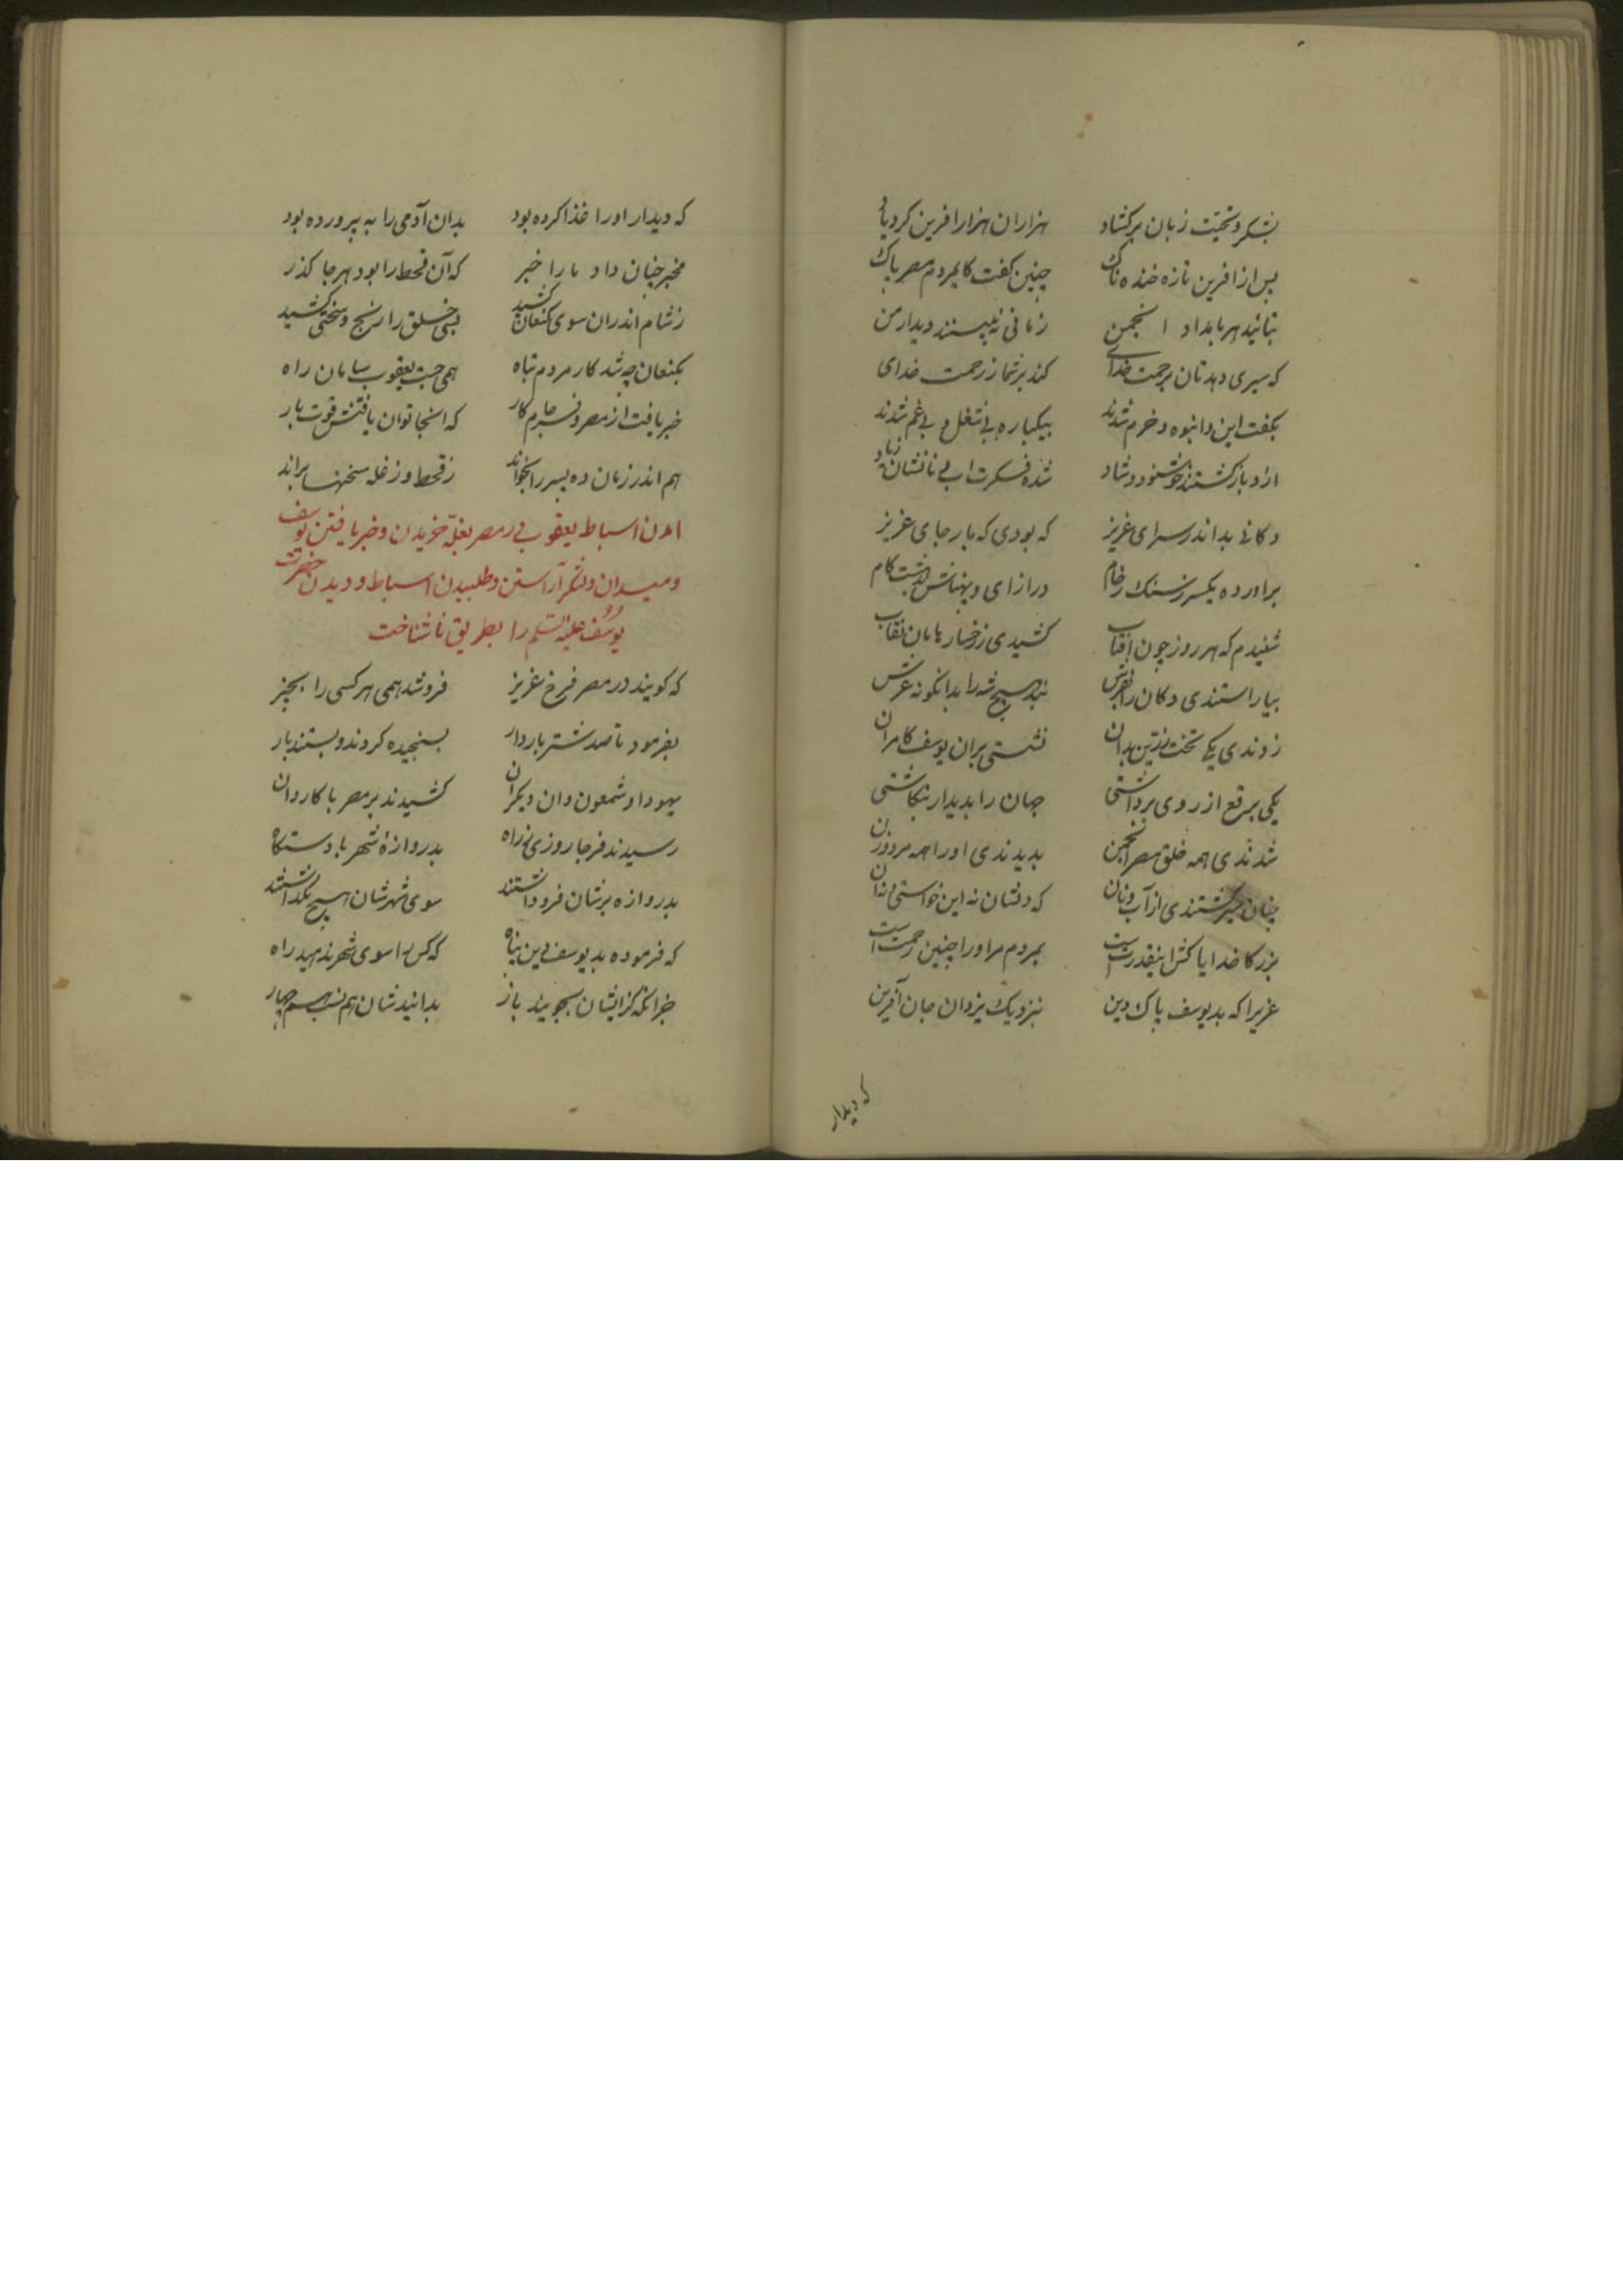 بشکر و تحیت زبان برکشاد هزاران هزار افرین کرد یاد
پس از افرین تازه خنده ناک چنین کفت کایمردم مصر پاک
بیائید هر بامداد انجمن زمانی ببینند دیدار من
که سیری دهدتان برحمت خدای کند بر شما ز رحمت خدای
بکفت این و انبوه و خرم شدند بیکباره بی شغل و بی غم شدند
ازو بازکشتند خوشنود و شاد شده فکرت اب نانشان زیاد
دکانی بد اندر سرای عزیز که بودی که بار جای عزیز
براورده یکسر ز سنک رخام درازای و پهناش کام
شنیدم که هر روز چون افتاب کشیدی ز رخسار تابان نقاب
بیاراستندی دکان را بفرش نبد هیچ شه را بدانکونه عرش
زدندی یکی تخت زرین بدان نشستی بران یوسف کامران
یکی برقع از روی برداشتی جهان را بدیدار بنکاشتی
شدندی همه خلق مصر انجمن بدیدندی او را همه مرد و زن
چنان سیر کشتندی از آب و نان که دلشان نه این خواستی نه آن
بزرکا خدایا کش اینقدرتست بمردم مر او را چنین رحمتست
عزیرا که بد یوسف پاک دین بنزدیک یزدان جان آفرین
که دیدار
که دیدار او را غذا کرده بود بدان آدمی را به پرورده بود
مخبر چنان داد ما را خبر که آن قحط را بود هر جا کذر
ز شام اندران سوی کنعان کشید بسی خلق را رنج و سختی کشید
بکنعان چه شد کار مردم تباه همی جست یعقوب سامان راه
خبر یافت از مصر و فرجام کار که انجا توان یافتن قوت بار
هم اندر زمان ده پسر را بخواند ز قحط و ز غله سخنها براند
امدن اسباط یعقوب در مصر بغله خریدن و خبر یافتن یوسف
و میدان و لشکر آراستن و طلبیدن اسباط و دیدن حضرت
یوسف علیه السلم را بطریق ناشناخت
که کویند در مصر فرخ عزیز فروشد همی هر کسی را بچیز
بفرمود تا صد شتر باردار بسنجیده کردند و بستند بار
یهودا و شمعون و ان دیکران کشیدند بر مصر با کاروان
رسیدند فرجا روزی ز راه بدروازهٔ شهر با دستکاه
بدروازه برشان فرود اشتند سوی شهرشان هیچ نکذاشتند
که فرموده بد یوسف دین پناه که کس را سوی شهر ندهید راه
جز انکه کز ایشان بجویید باز بدانید شان هم نسب هم جهار